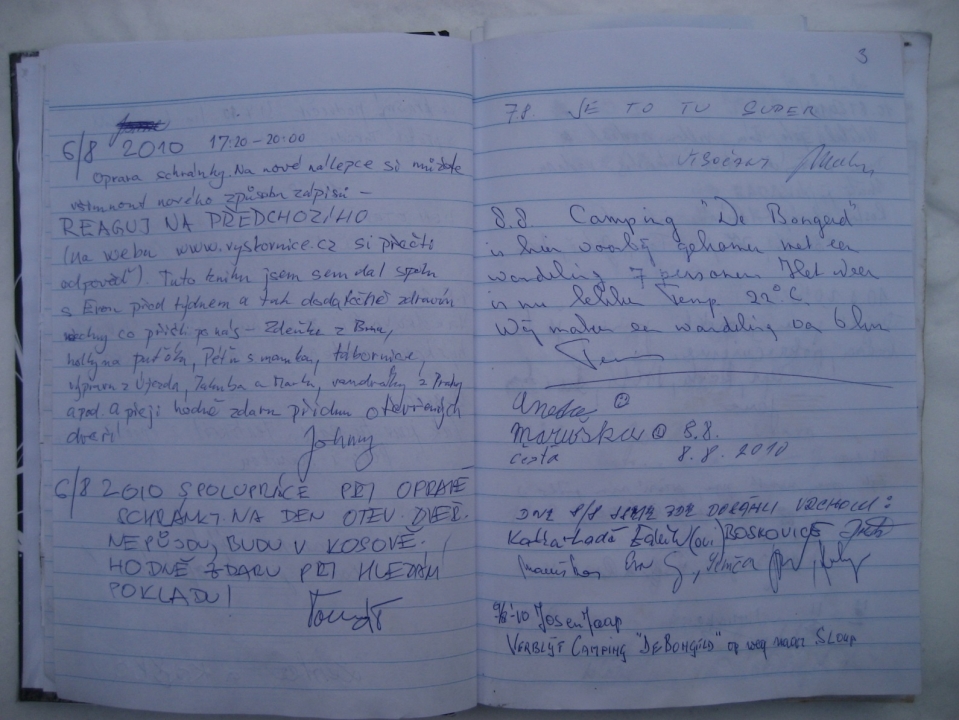 6/8 2010 17:20-20:00
Oprava schránky. Na nové nálepce si můžete
všimnout nového způsobu zápisů –
REAGUJ NA PŘEDCHOZÍHO
(na webu www.vystornice.cz si přečti
odpověď). Tuto knihu jsem sem dal spolu
s Evou před týdnem a tak dodatečně zdravím
všechny co přišli po nás – Zdeňka z Brna,
holky na puťáku, Péťu s mamkou, tábornice,
výpravu z Újezda, Jakuba a Marka, vandráky z Prahy
apod. A přeji hodně zdaru příchu otevřených
dveří!
Johny
6/8 2010 SPOLUPRÁCE PŘI OPRAVĚ
SCHRÁNKY. NA DEN OTEV. DVEŘ.
NEPŮJDU, BUDU V KOSOVĚ.
HODNĚ ZDARU PŘI HLEDÁNÍ
POKLADU!
3
78. JE TO TU SUPER
8.8. Camping "De Bongerd"
is hier voorbij gekomen met een
wandeling 7 personen Het weer
is nu lekker Temp 22° C.
Wij maken een wandeling van 6 km
Maruška 8.8.
8.8.2010
DNE 8/8 JSME ZDE DOSÁHLI VRCHOLU:
BOSKOVICE
9/8-'10 Jos en Jaap
VERBLIJF CAMPING "DE BONGERD" op weg naar SLOUP